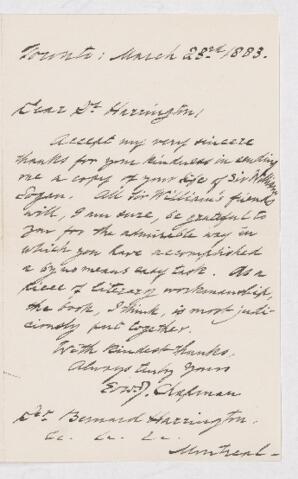 Toronto: March 23rd 1883.
Dear Dr Harrington,
Accept my very sincere
thanks for your kindness in sending
me a copy of your life of Sir William
Logan. All Sir William's friends
will, I am sure, be grateful to
you for the admirable way in
which you have accomplished
a by no means easy task. As a
piece of literary workmanship,
the book, I think, is most judi-
ciously put together.
With kindest thanks,
Always truly yours
Edw. J. Chapman
Dr. Bernard Harrington.
&c. &c. &c.
Montreal—